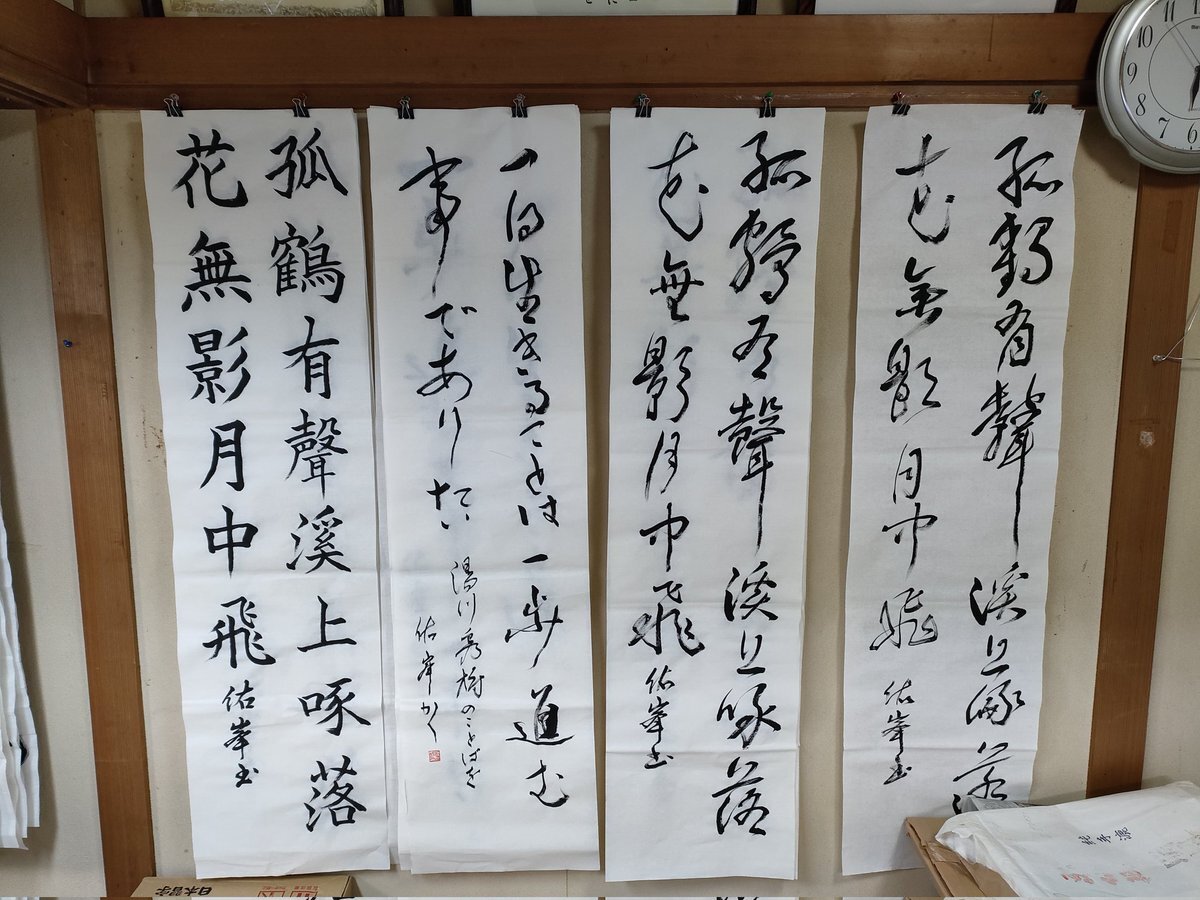 孤鶴有聲溪上啄落
花無影月中飛
佑峯書
孤鶴有聲溪上啄落
花無影月中飛
佑峯書
一日生きることは一歩進む
事でありたい
湯川秀樹のことばを
佑峯かく
孤鶴有聲溪上啄落
花無影月中飛
佑峯書
日本習字
11
10
9
8
7
6